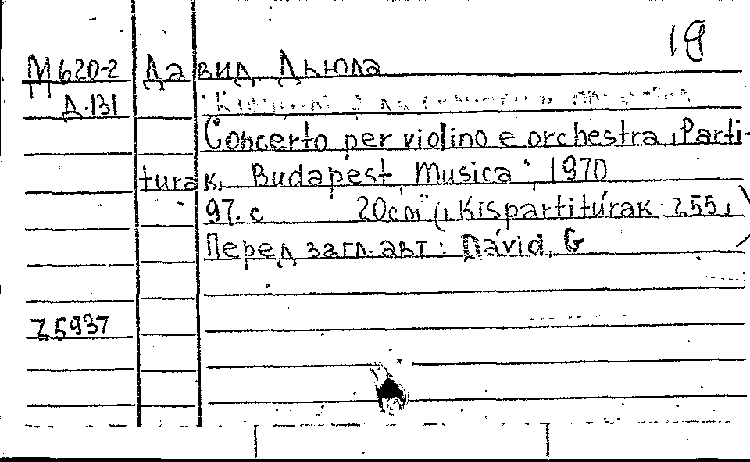 19
М620-2 Давид, Дьюла
Д-131
Concerto per violino e orchestra, Parti-
turak, Budapest, Musica, 1970
97. c 20cm (, Kispartitúrak 255, )
Перед загл. авт: Dávid, G
Z5937